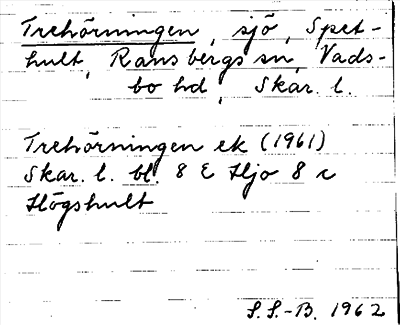 Trehörningen, sjö, Spet-
hult, Ransbergs sn, Vads-
bo hd, Skar. l.
Trehörningen ek (1961)
Skar. l. bl. 8 E Hjo 8 c
Högshult
S. S.-B. 1962